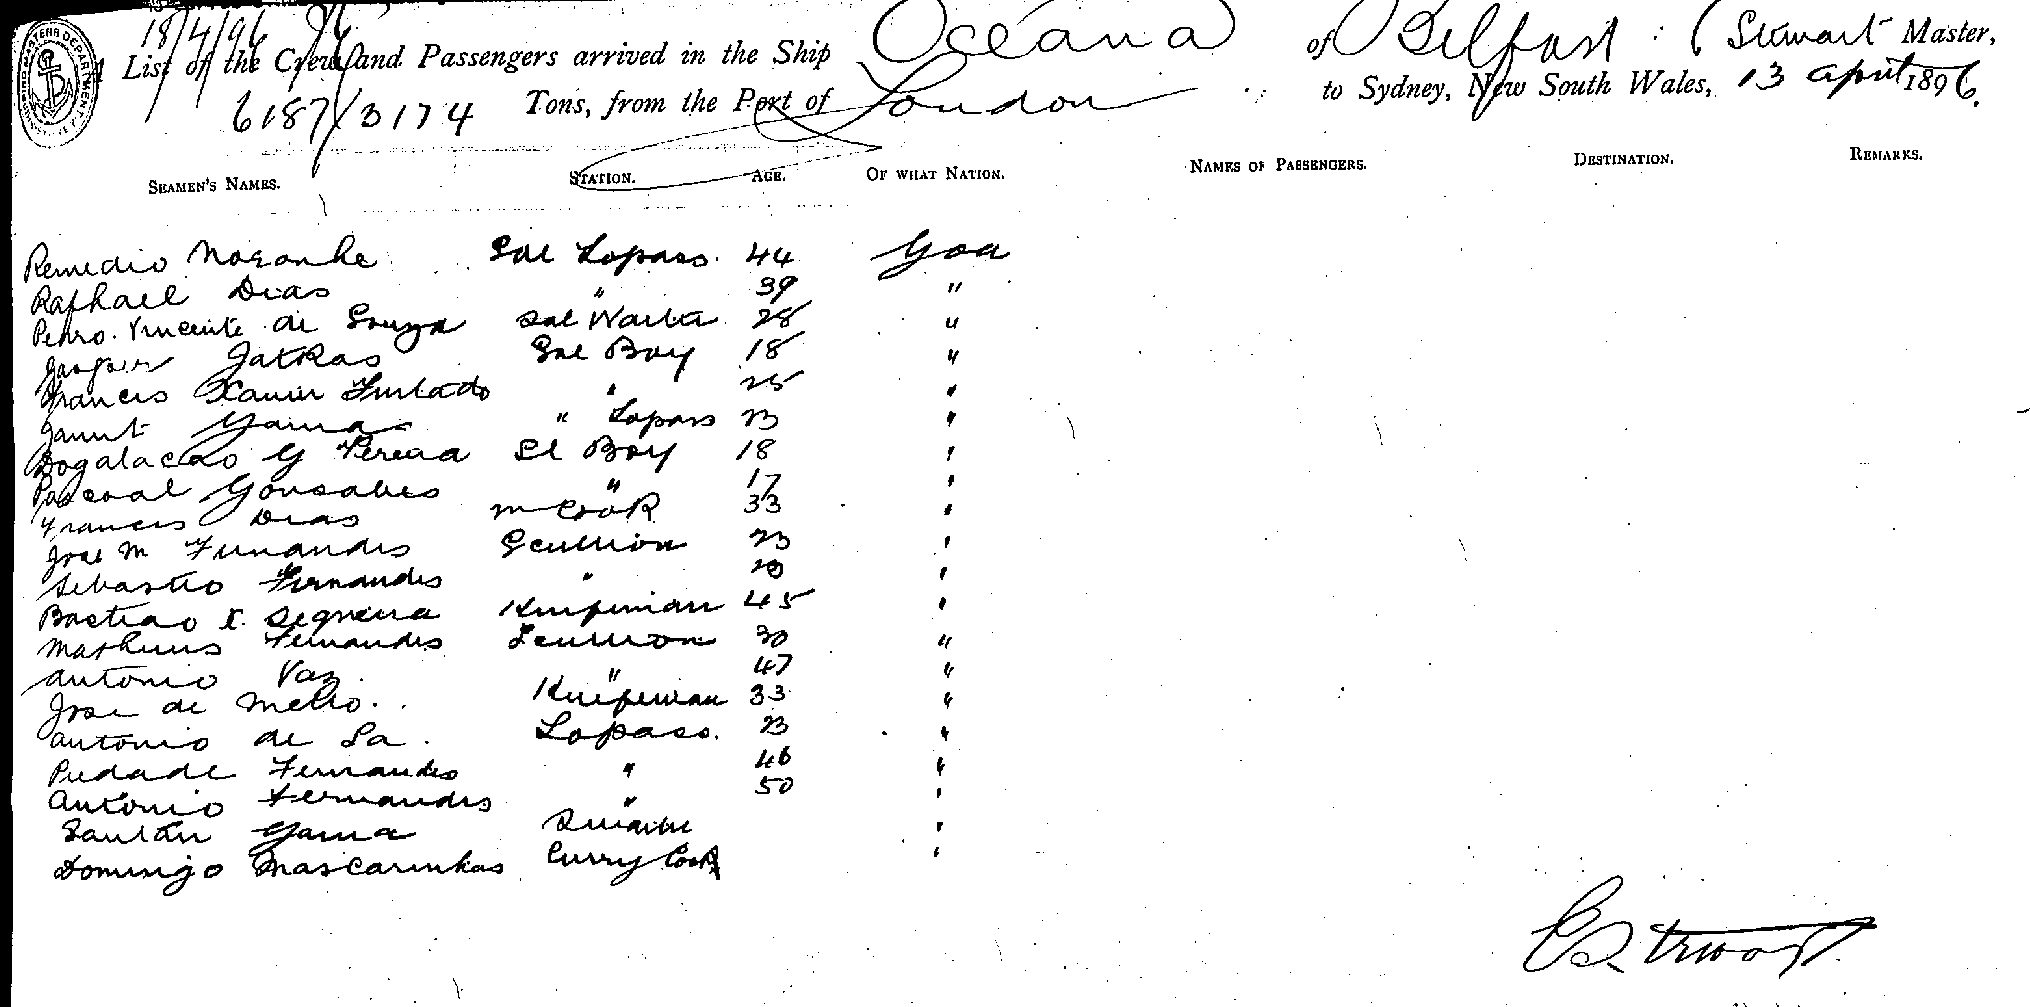 18/4/96
List of the Crew and Passengers arrived in the Ship Oceana of Belfast: Stewart Master,
6187/3174 Tons, from the Port of London to Sydney, New South Wales, 13 April 1896.
SEAMEN'S NAMES. STATION. AGE. OF WHAT NATION. NAMES OF PASSENGERS. DESTINATION. REMARKS.
Remedio Noronhe Sal Lopass. 44 Goa
Raphael Dias " 39 "
Pedro. Vincente de Souza Sal Waiter 28 "
Sal Boy 18 "
Francis Xavier Furtado " 25 "
Gama " Lopass 23 "
G Pereira Sl Boy 18 "
Pascoal Gonsalves " 17 "
Francis Dias m Cook 33 "
Jose M Fernandes Scullion 23 "
Sebastio Fernandes " "
Bastiao X. Sequeira Knifeman 45 "
Matheus Fernandes Scullion 30 "
Antonio Vaz. " 47 "
Jose de Mello. Knifeman 33 "
Antonio de Sa. Lopass. 23 "
Piedade Fernandes " 46 "
Antonio Fernandes " 50 "
Santan Gama "
Domingo Mascarinhas Curry Cook "